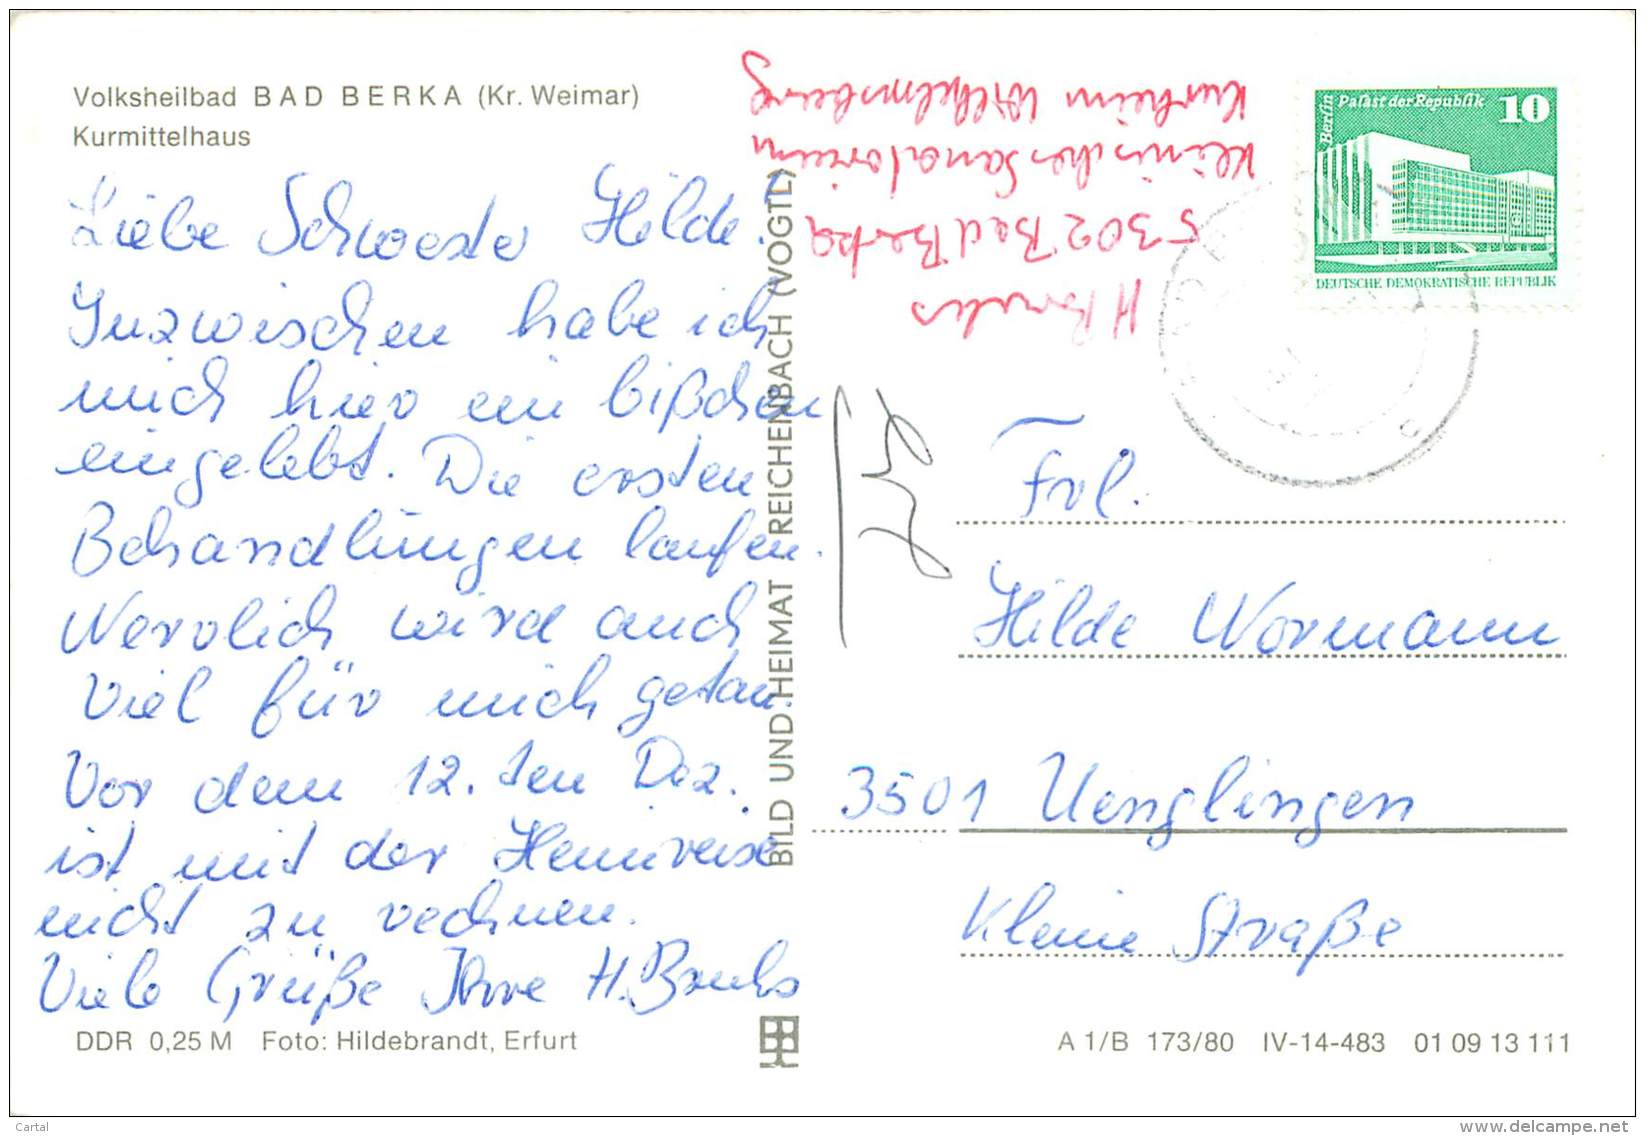 Volksheilbad BAD BERKA (Kr. Weimar)
Kurmittelhaus
Liebe Schwester Hilde!
Inzwischen habe ich
mich hier ein bißchen
eingelebt. Die ersten
Behandlungen laufen.
Nervlich wird auch
viel für mich getan.
Vor dem 12. ten Dez.
ist mit der Heimreise
nicht zu rechnen.
Viele Grüße Ihre H. Bruhs
DDR 0,25 M Foto: Hildebrandt, Erfurt
BILD UND HEIMAT REICHENBACH (VOGTL)
H Bruhs
5302 Bad Berka
Klinisches Sanatorium
Kurheim Wilhelmsburg
Berlin Palast der Republik 10
DEUTSCHE DEMOKRATISCHE REPUBLIK
Frl.
Hilde Wormann
3501 Uenglingen
Kleine Straße
A 1/B 173/80 IV-14-483 01 09 13 111
Cartal
www.delcampe.net